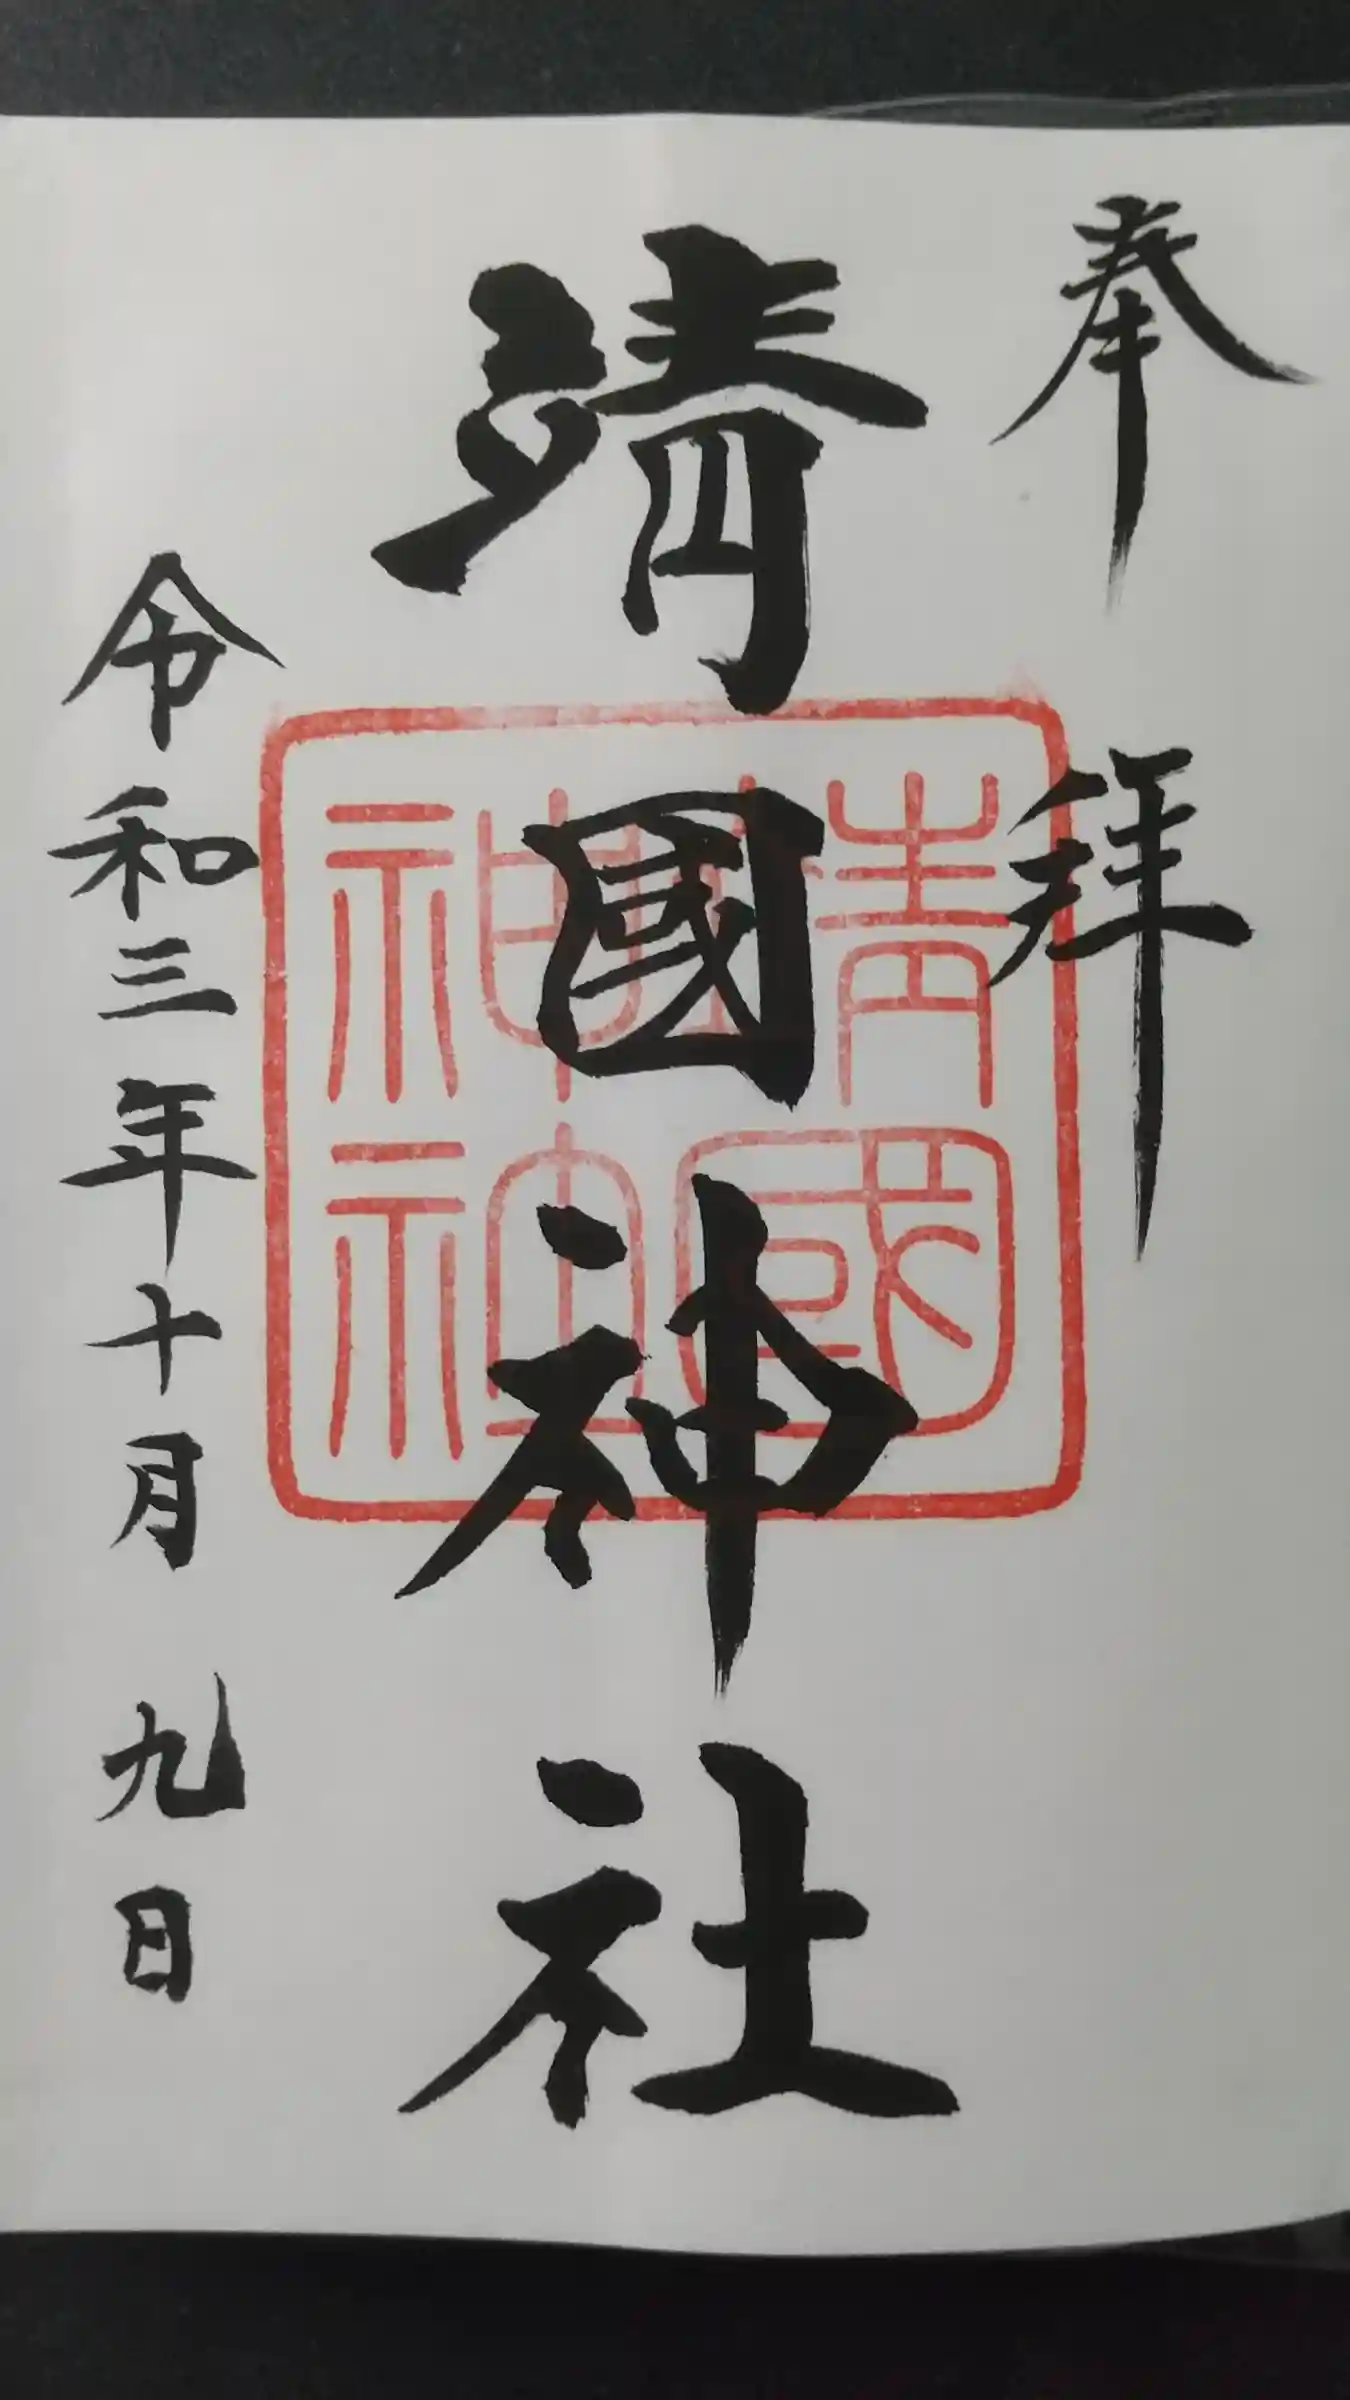 奉拝
靖國神社
靖國
神社
令和三年十月九日